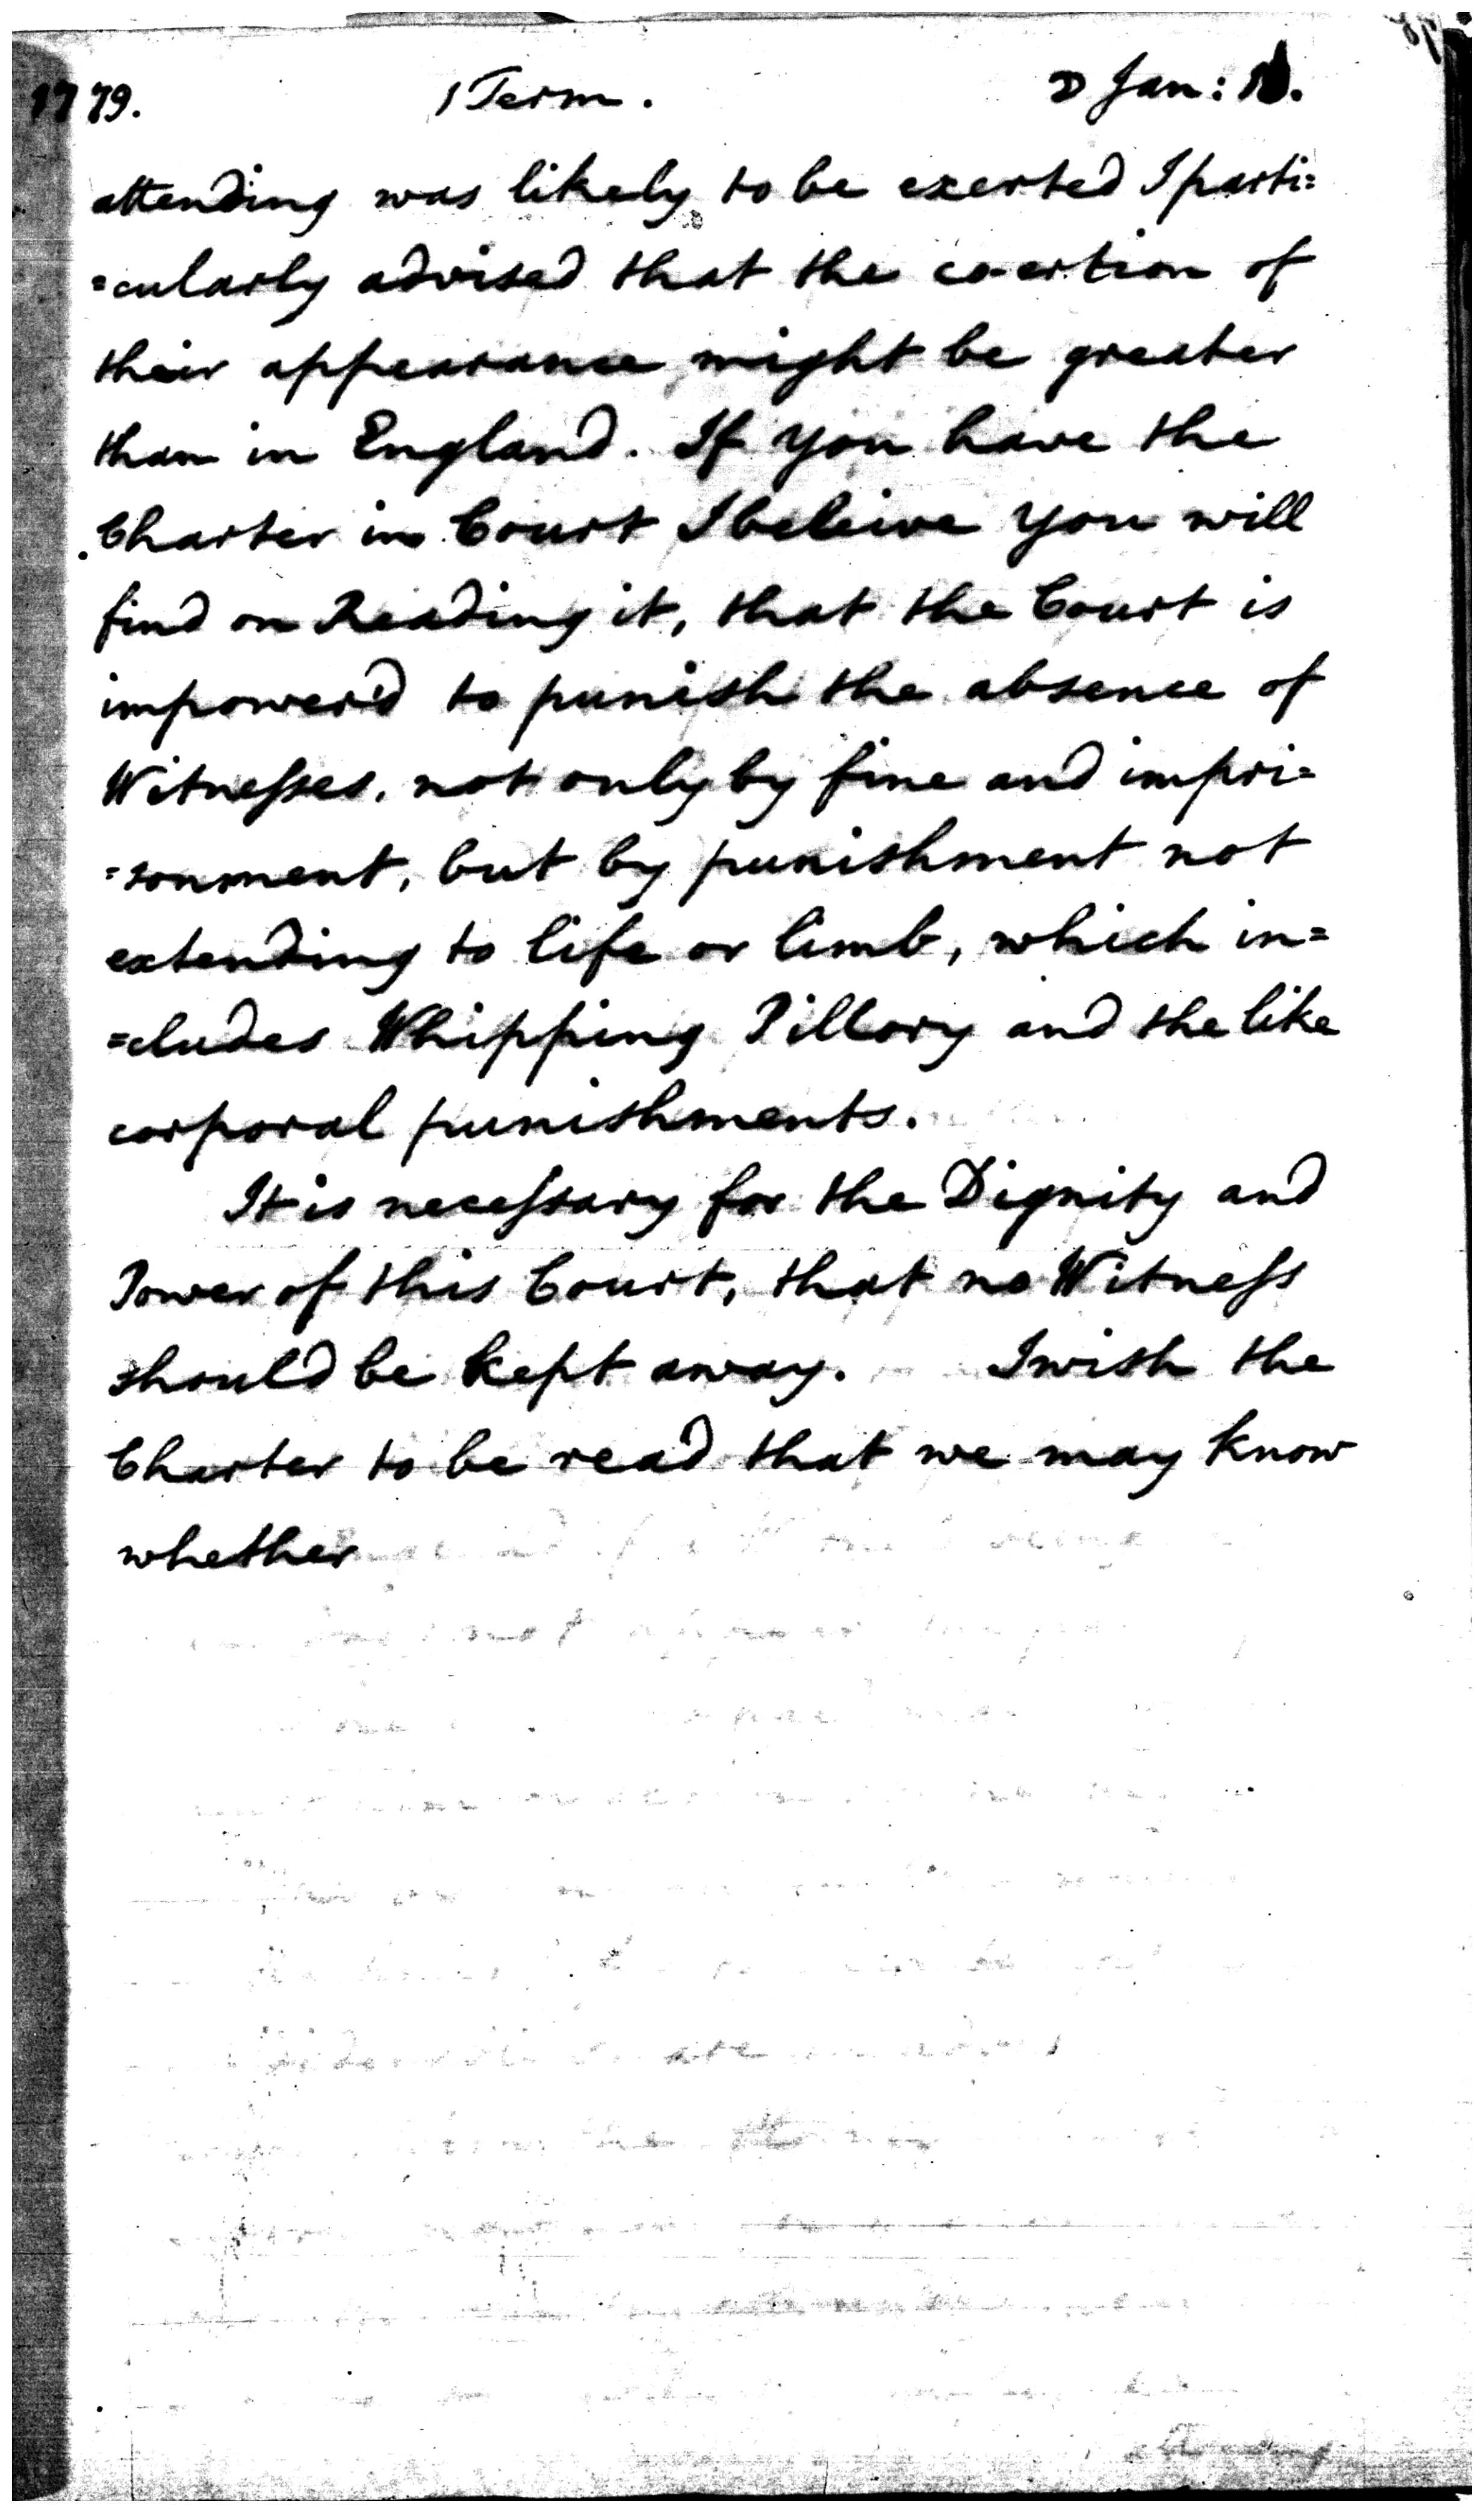 1779. 1 Term. Jan:
attending was likely to be exerted I parti=
=cularly advised that the co-ertion of
their appearance might be greater
than in England. If you have the
Charter in Court I beleive you will
find on Reading it, that the Court is
impower'd to punish the absence of
Witnesses, not only by fine and impri=
=sonment, but by punishment not
extending to life or limb, which in=
=cludes Whipping Pillory and the like
corporal punishments.
It is necessary for the Dignity and
Power of this Court, that no Witness
should be kept away. I wish the
Charter to be read that we may know
whether